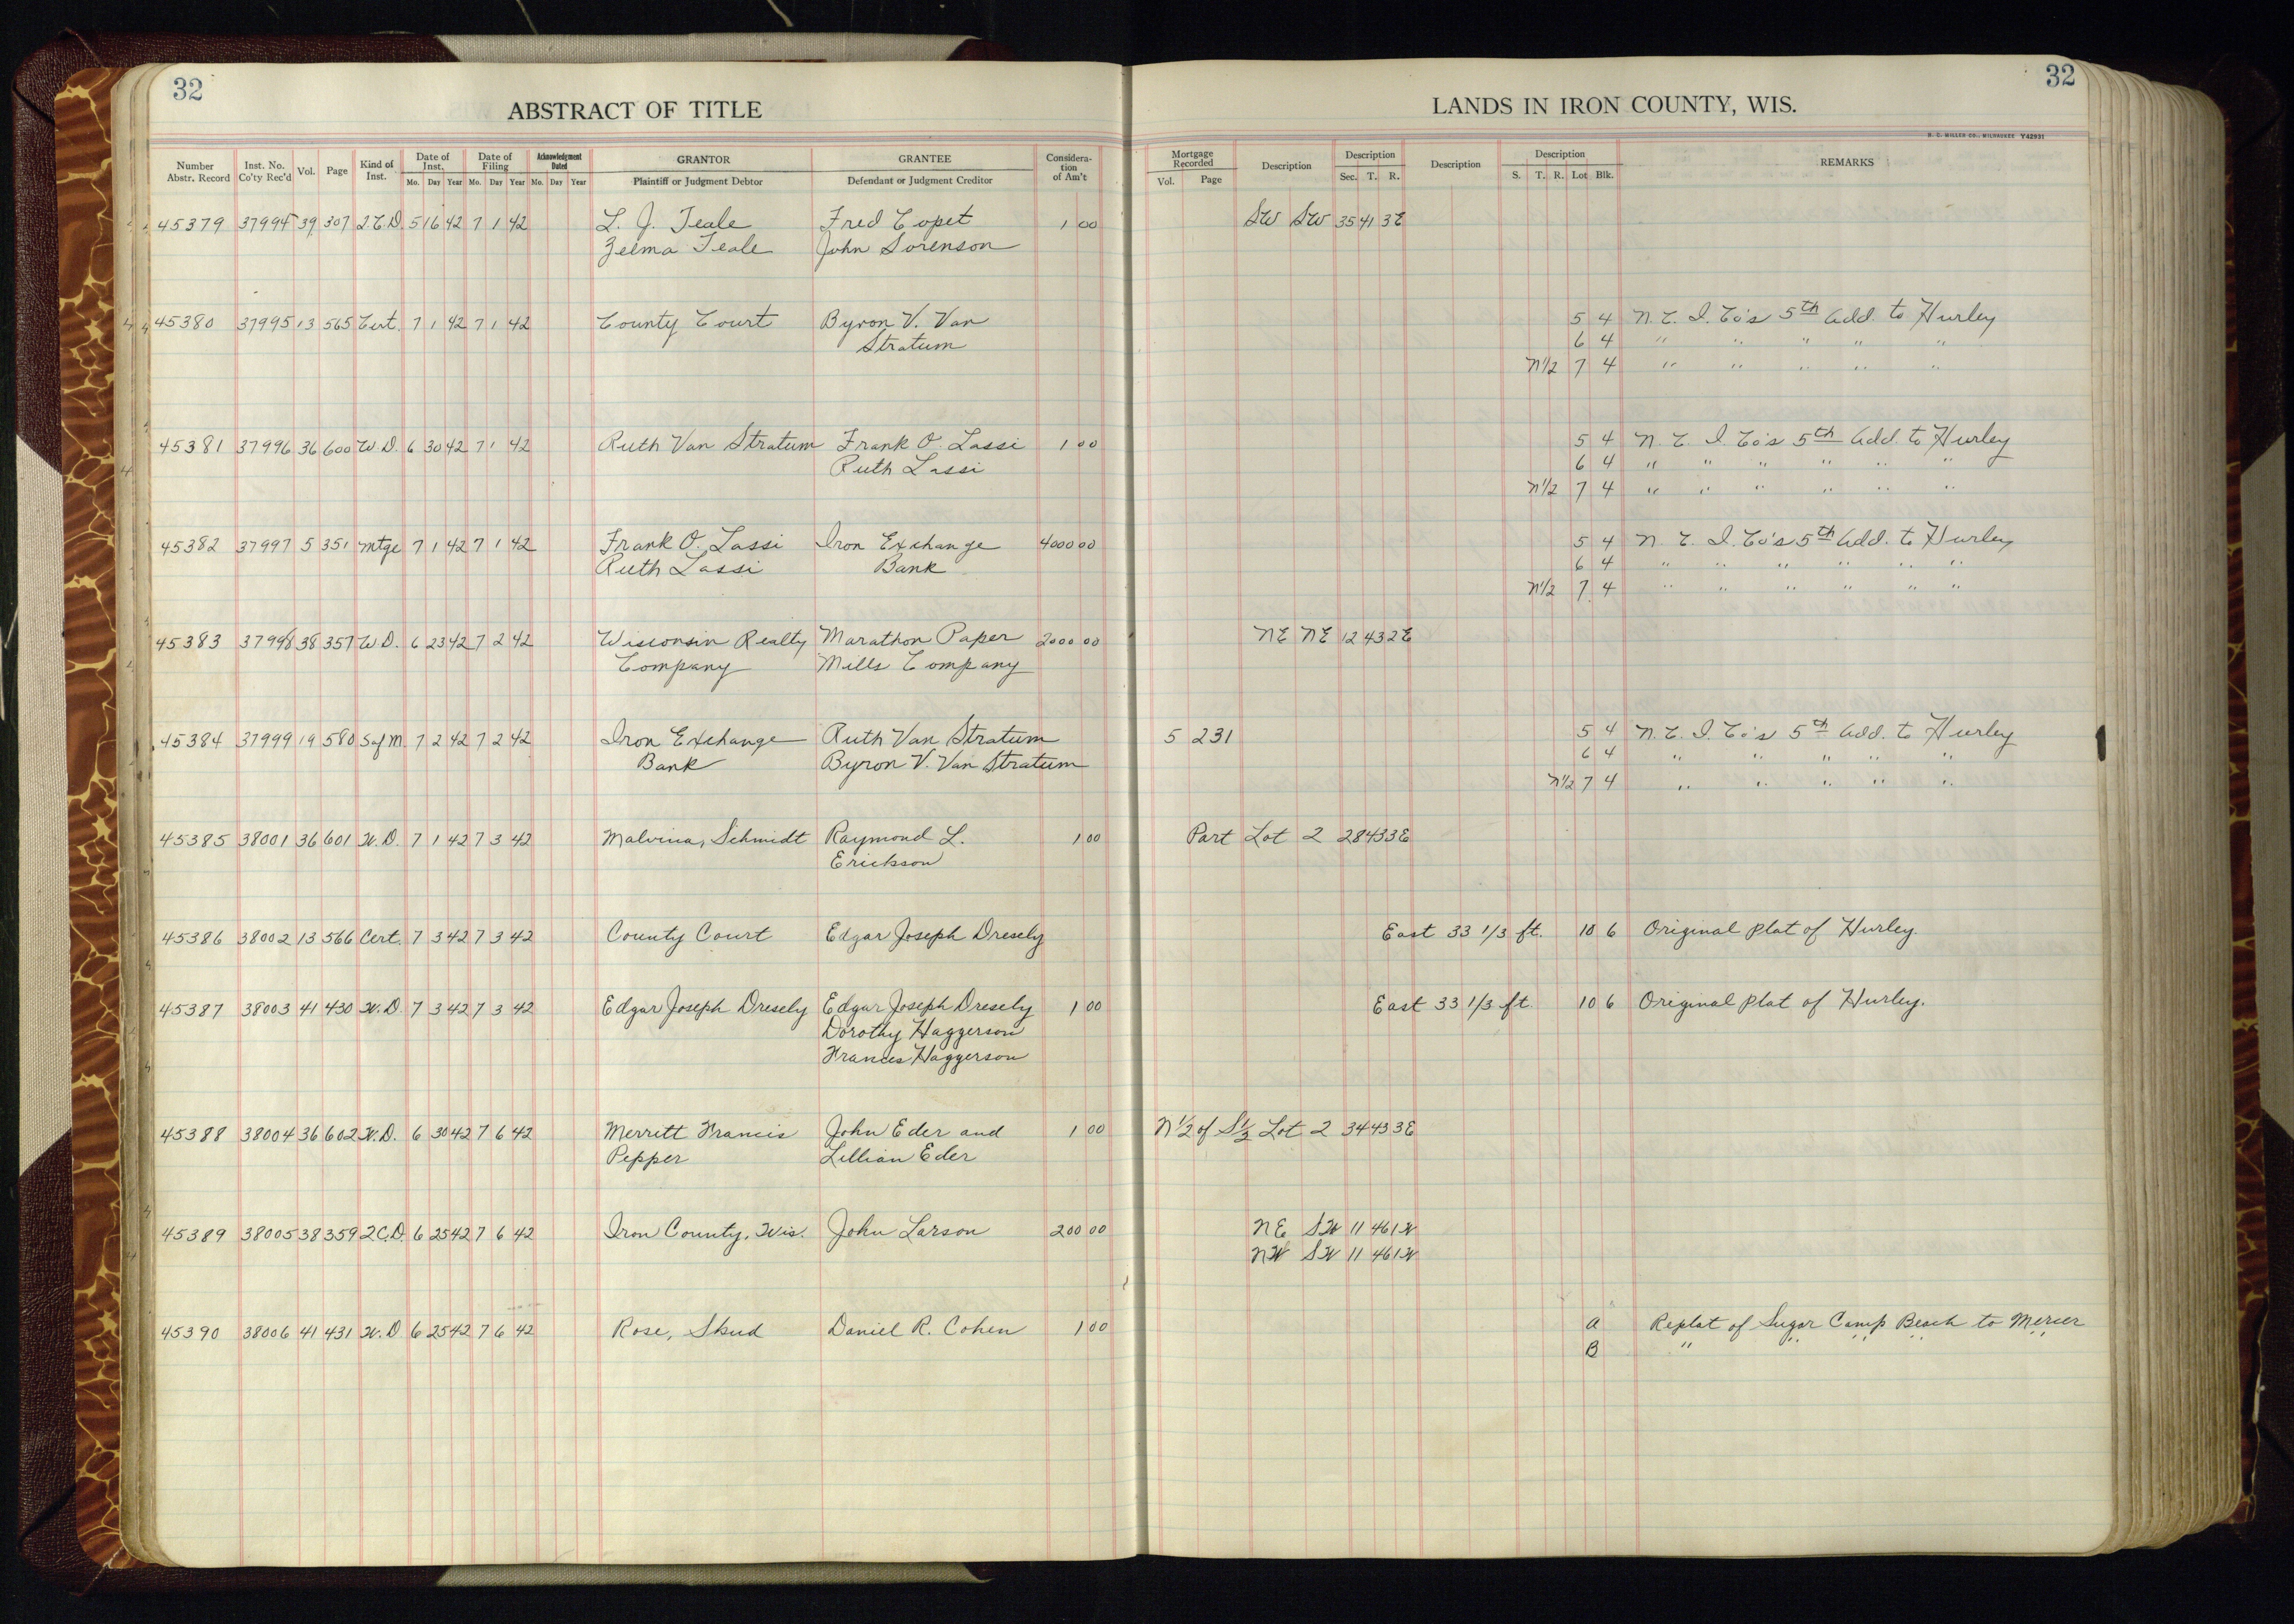 32
ABSTRACT OF TITLE
Number Abstr. Record | Inst. No. Co'ty Rec'd | Vol. | Page | Kind of Inst. | Date of Inst. Mo. Day Year | Date of Filing Mo. Day Year | Acknowledgment Dated Mo. Day Year | GRANTOR Plaintiff or Judgment Debtor | GRANTEE Defendant or Judgment Creditor | Considera-tion of Am't
45379 37994 39 307 2.C.D. 5 16 42 7 1 42 L. J. Teale Fred Copet 1 00
Zelma Teale John Sorenson
45380 37995 13 565 Cert. 7 1 42 7 1 42 County Court Byron V. Van
Stratum
45381 37996 36 600 W.D. 6 30 42 7 1 42 Ruth Van Stratum Frank O. Lassi 1 00
Ruth Lassi
45382 37997 5 351 Mtge 7 1 42 7 1 42 Frank O. Lassi Iron Exchange 4000 00
Ruth Lassi Bank
45383 37998 38 357 W.D. 6 23 42 7 2 42 Wisconsin Realty Marathon Paper 2000 00
Company Mills Company
45384 37999 19 580 S of M. 7 2 42 7 2 42 Iron Exchange Ruth Van Stratum
Bank Byron V. Van Stratum
45385 38001 36 601 W.D. 7 1 42 7 3 42 Malvina, Schmidt Raymond L. 1 00
Erickson
45386 38002 13 566 Cert. 7 3 42 7 3 42 County Court Edgar Joseph Dresely
45387 38003 41 430 W.D. 7 3 42 7 3 42 Edgar Joseph Dresely Edgar Joseph Dresely 1 00
Dorothy Haggerson
Frances Haggerson
45388 38004 36 602 W.D. 6 30 42 7 6 42 Merritt Francis John Eder and 1 00
Pepper Lillian Eder
45389 38005 38 359 2C.D. 6 25 42 7 6 42 Iron County, Wis. John Larson 200 00
45390 38006 41 431 W.D 6 25 42 7 6 42 Rose, Skud Daniel R. Cohen 1 00
32
LANDS IN IRON COUNTY, WIS.
H. C. MILLER CO., MILWAUKEE Y42931
Mortgage Recorded Vol. Page | Description | Description Sec. T. R. | Description | Description S. T. R. Lot Blk. | REMARKS
SW SW 35 41 3E
5 4 N. C. I. Co's 5th Add. to Hurley
6 4 " " " " "
N1/2 7 4 " " " " "
5 4 N. C. I. Co's 5th Add. to Hurley
6 4 " " " " " "
N1/2 7 4 " " " " " "
5 4 N. C. I. Co's 5th Add. to Hurley
6 4 " " " " " "
N1/2 7 4 " " " " " "
NE NE 12 43 2E
5 231 5 4 N. C. I. Co's 5th Add. to Hurley
6 4 " " " " "
N1/2 7 4 " " " " "
Part Lot 2 28 43 3E
East 33 1/3 ft. 10 6 Original Plat of Hurley
East 33 1/3 ft. 10 6 Original Plat of Hurley.
N 1/2 of S 1/2 Lot 2 34 43 3E
NE SW 11 46 1W
NW SW 11 46 1W
A Replat of Sugar Camp Beach to Mercer
B " " " " "